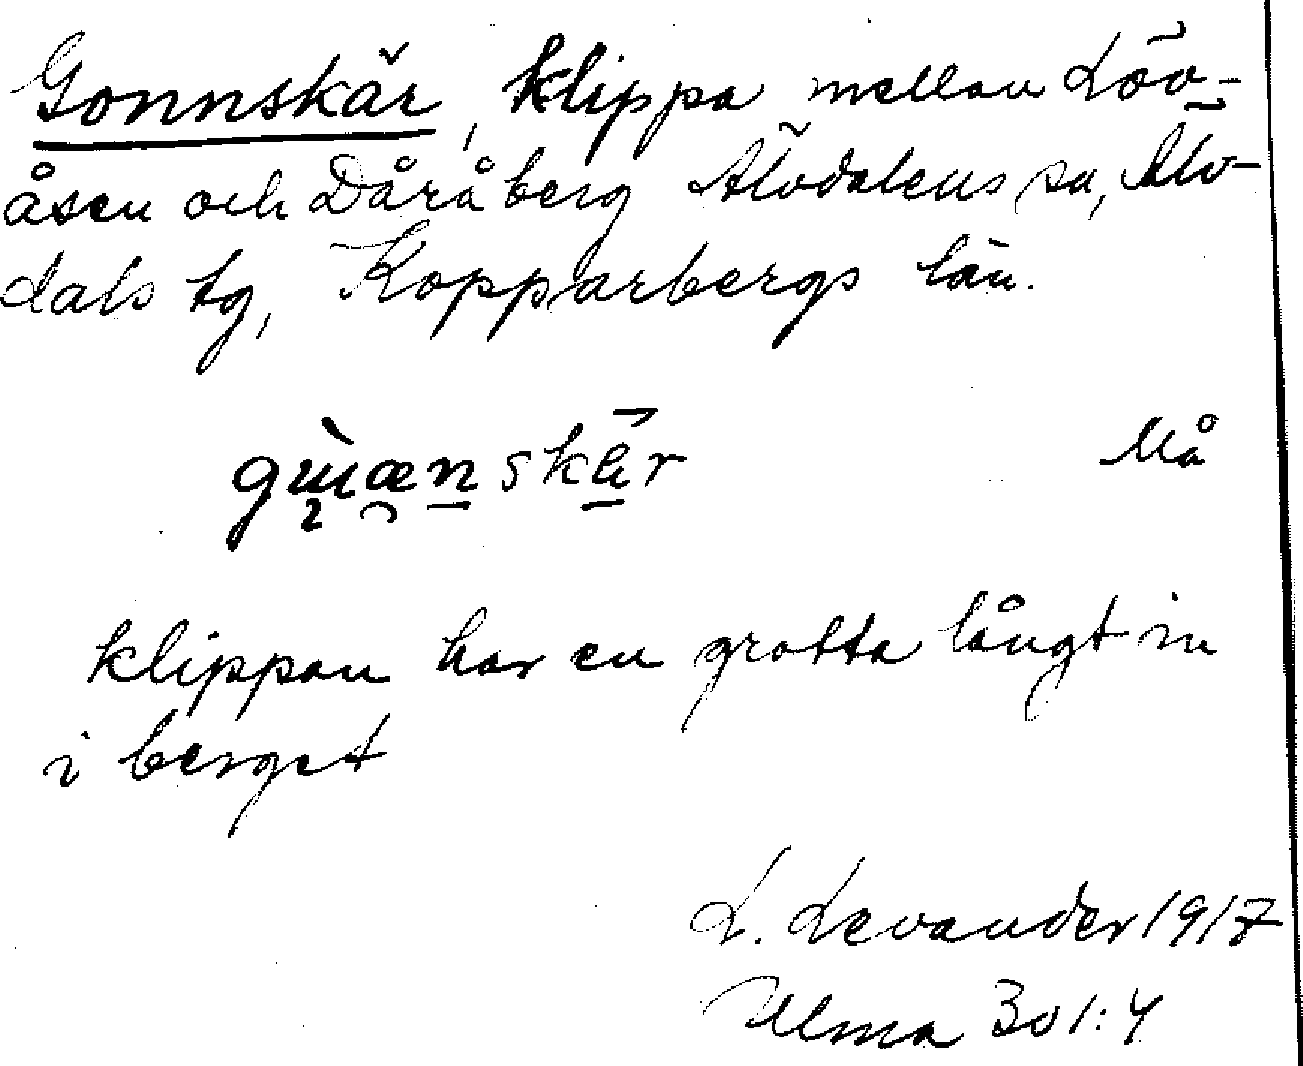 Gonnskär, klippa mellan Löv-
åsen och Dåråberg Älvdalens sn, Älv-
dals tg, Kopparbergs län.
Må
klippan har en grotta långt in
i berget
L. Levander 1917
Ulma 301:4